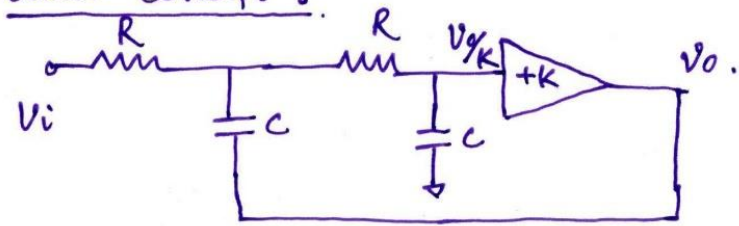 R
R
Vo/K
+K
Vo.
Vi
C
C